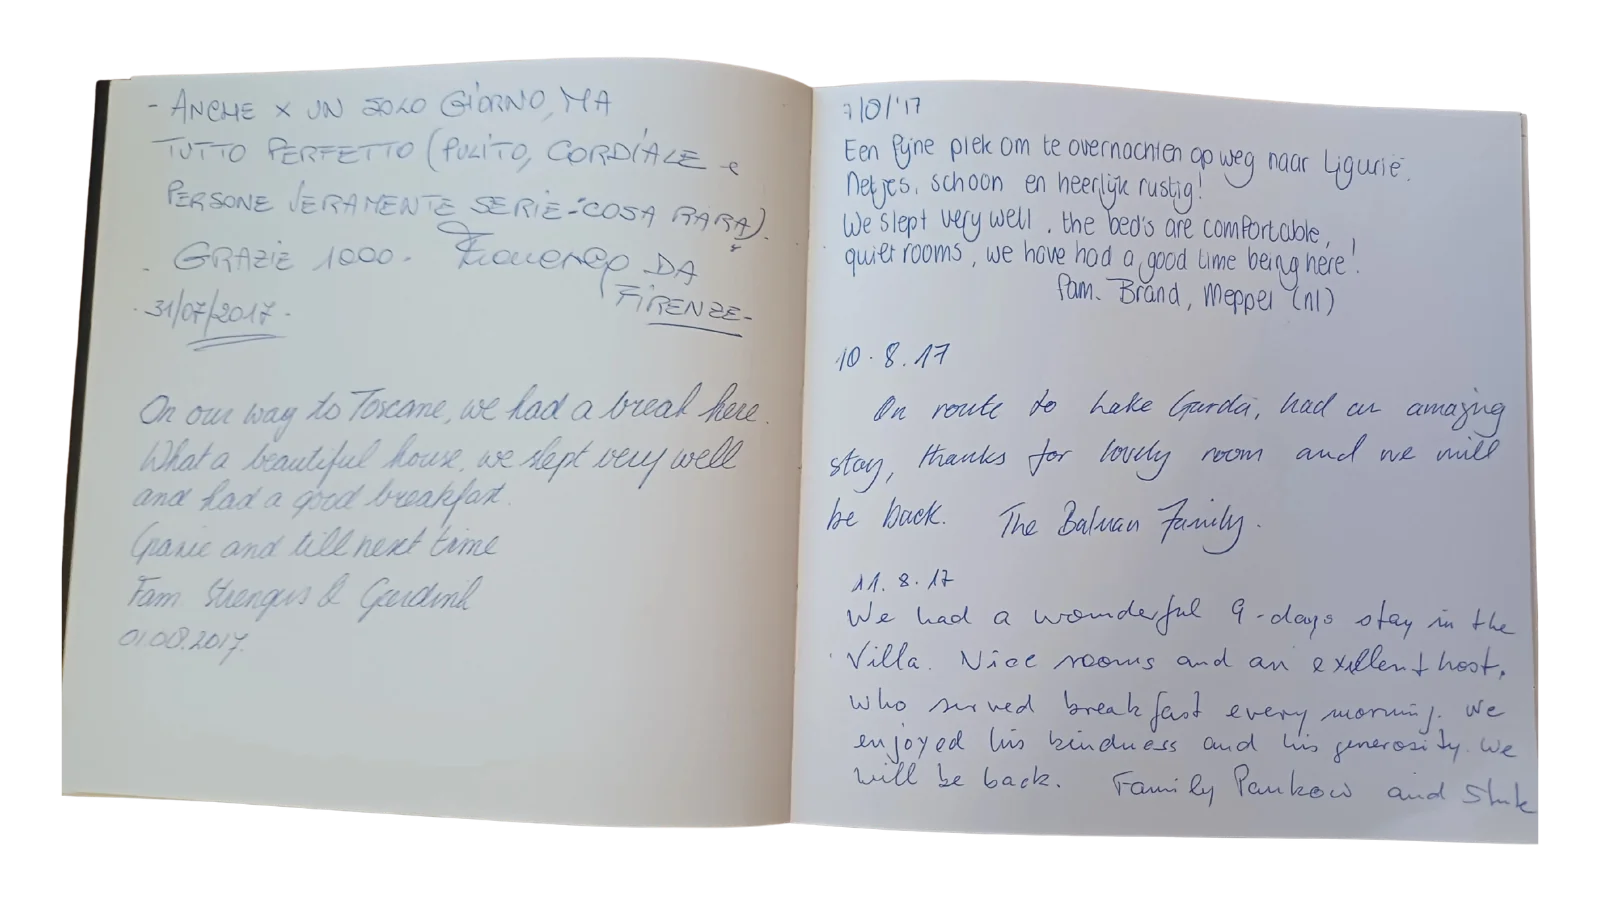 - ANCHE X UN SOLO GIORNO, MA
TUTTO PERFETTO (PULITO, CORDIALE e
PERSONE VERAMENTE SERIE - COSA RARA).
GRAZIE 1000. DA
FIRENZE-
31/07/2017.
On our way to Toscane, we had a break here.
What a beautiful house, we slept very well
and had a good breakfast.
Grazie and till next time
Fam. &
01.08.2017.
7/8/'17
Een fijne plek om te overnachten op weg naar Ligurië.
Netjes, schoon en heerlijk rustig!
We slept very well, the bed's are comfortable,
quiet rooms, we have had a good time being here!
Fam. Brand, Meppel (nl)
10.8.17
On route to Lake Garda, had an amazing
stay, thanks for lovely room and we will
be back. The Family.
11.8.17
We had a wonderful 9-days stay in the
Villa. Nice rooms and an exellent host,
who served breakfast every morning. We
enjoyed his kindness and his generosity. We
will be back. Family Pankow and